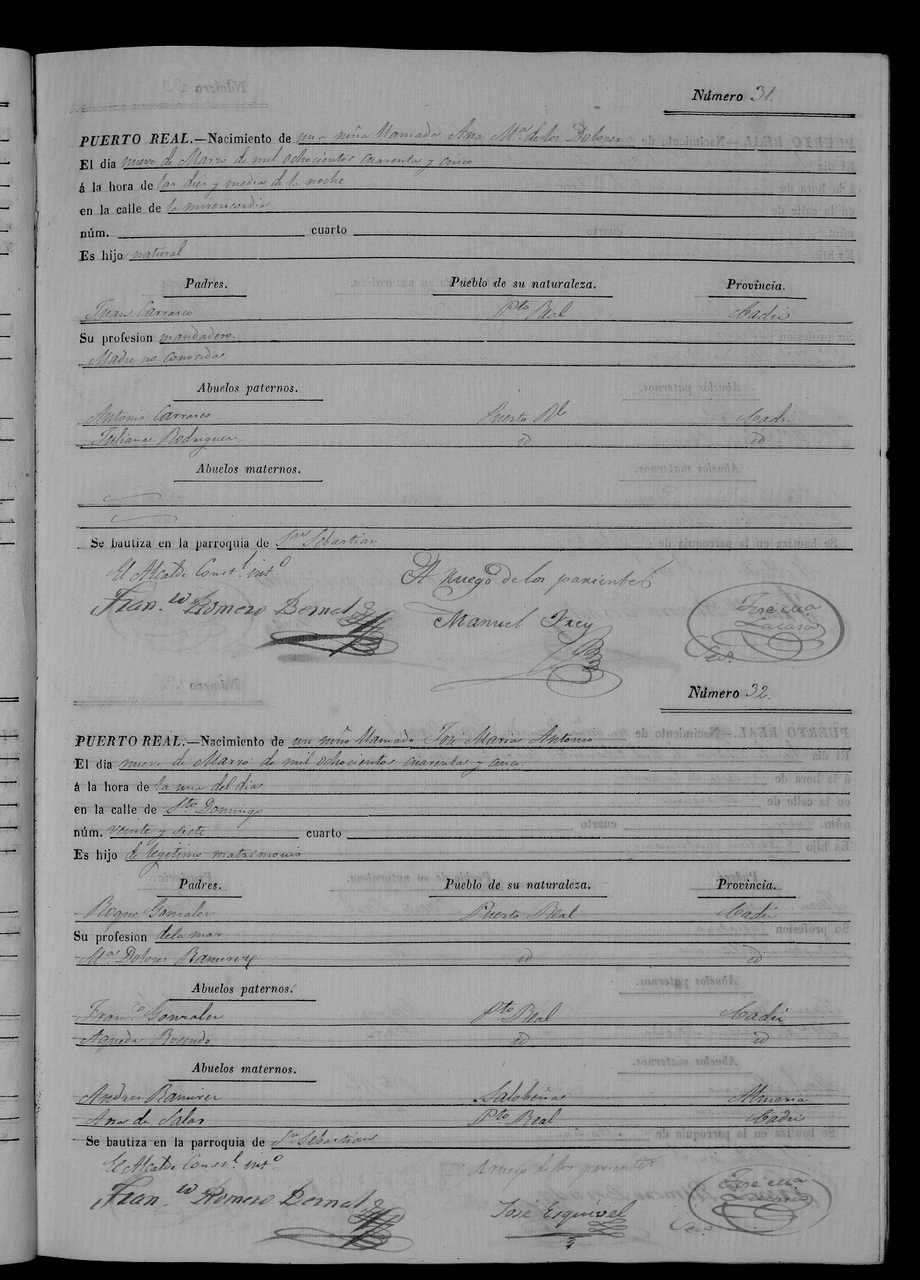 Número 31.
PUERTO REAL.—Nacimiento de una niña llamada Ana Mª de los Dolores
El dia nueve de Marzo de mil ochocientos cuarenta y cinco
á la hora de las diez y media de la noche
en la calle de la misericordia
núm. cuarto
Es hijo natural
Padres. Pueblo de su naturaleza. Provincia.
Juan Carrasco Pto Real Cadiz
Su profesion mandadero
Madre no conocida
Abuelos paternos.
Antonio Carrasco Puerto Rl Cadiz
Juliana Rodriguez id id
Abuelos maternos.
Se bautiza en la parroquia de Sn Sebastian
El Alcalde Const.l intº
A ruego de los parientes
Fran.co Romero Bernal
Manuel
Jose
Número 32.
PUERTO REAL.—Nacimiento de un niño llamado José Maria Antonio
El dia nueve de Marzo de mil ochocientos cuarenta y cinco
á la hora de la una del dia
en la calle de Sto Domingo
núm. veinte y siete cuarto
Es hijo de legitimo matrimonio
Padres. Pueblo de su naturaleza. Provincia.
Roque Gonzalez Puerto Real Cadiz
Su profesion de la mar
Mª Dolores Ramirez id id
Abuelos paternos.
Franco Gonzalez Pto Real Cadiz
Agueda Rosendo id id
Abuelos maternos.
Andres Ramirez Almeria
Ana de Salas Pto Real Cadiz
Se bautiza en la parroquia de Sn Sebastian
El Alcalde Const.l intº
A ruego de los parientes
Fran.co Romero Bernal
José Esquivel
Jose